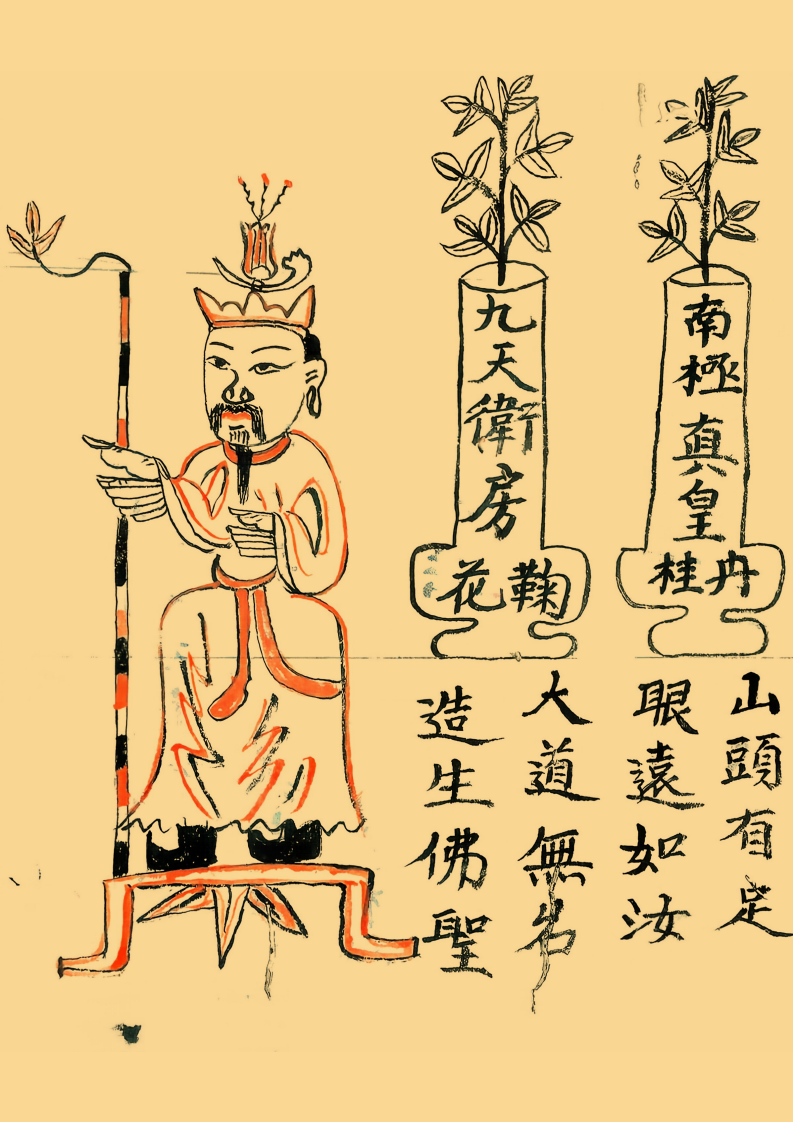 南極真皇
丹桂
九天衛房
鞠花
山頭有足
眼遠如汝
大道無名
造生佛聖